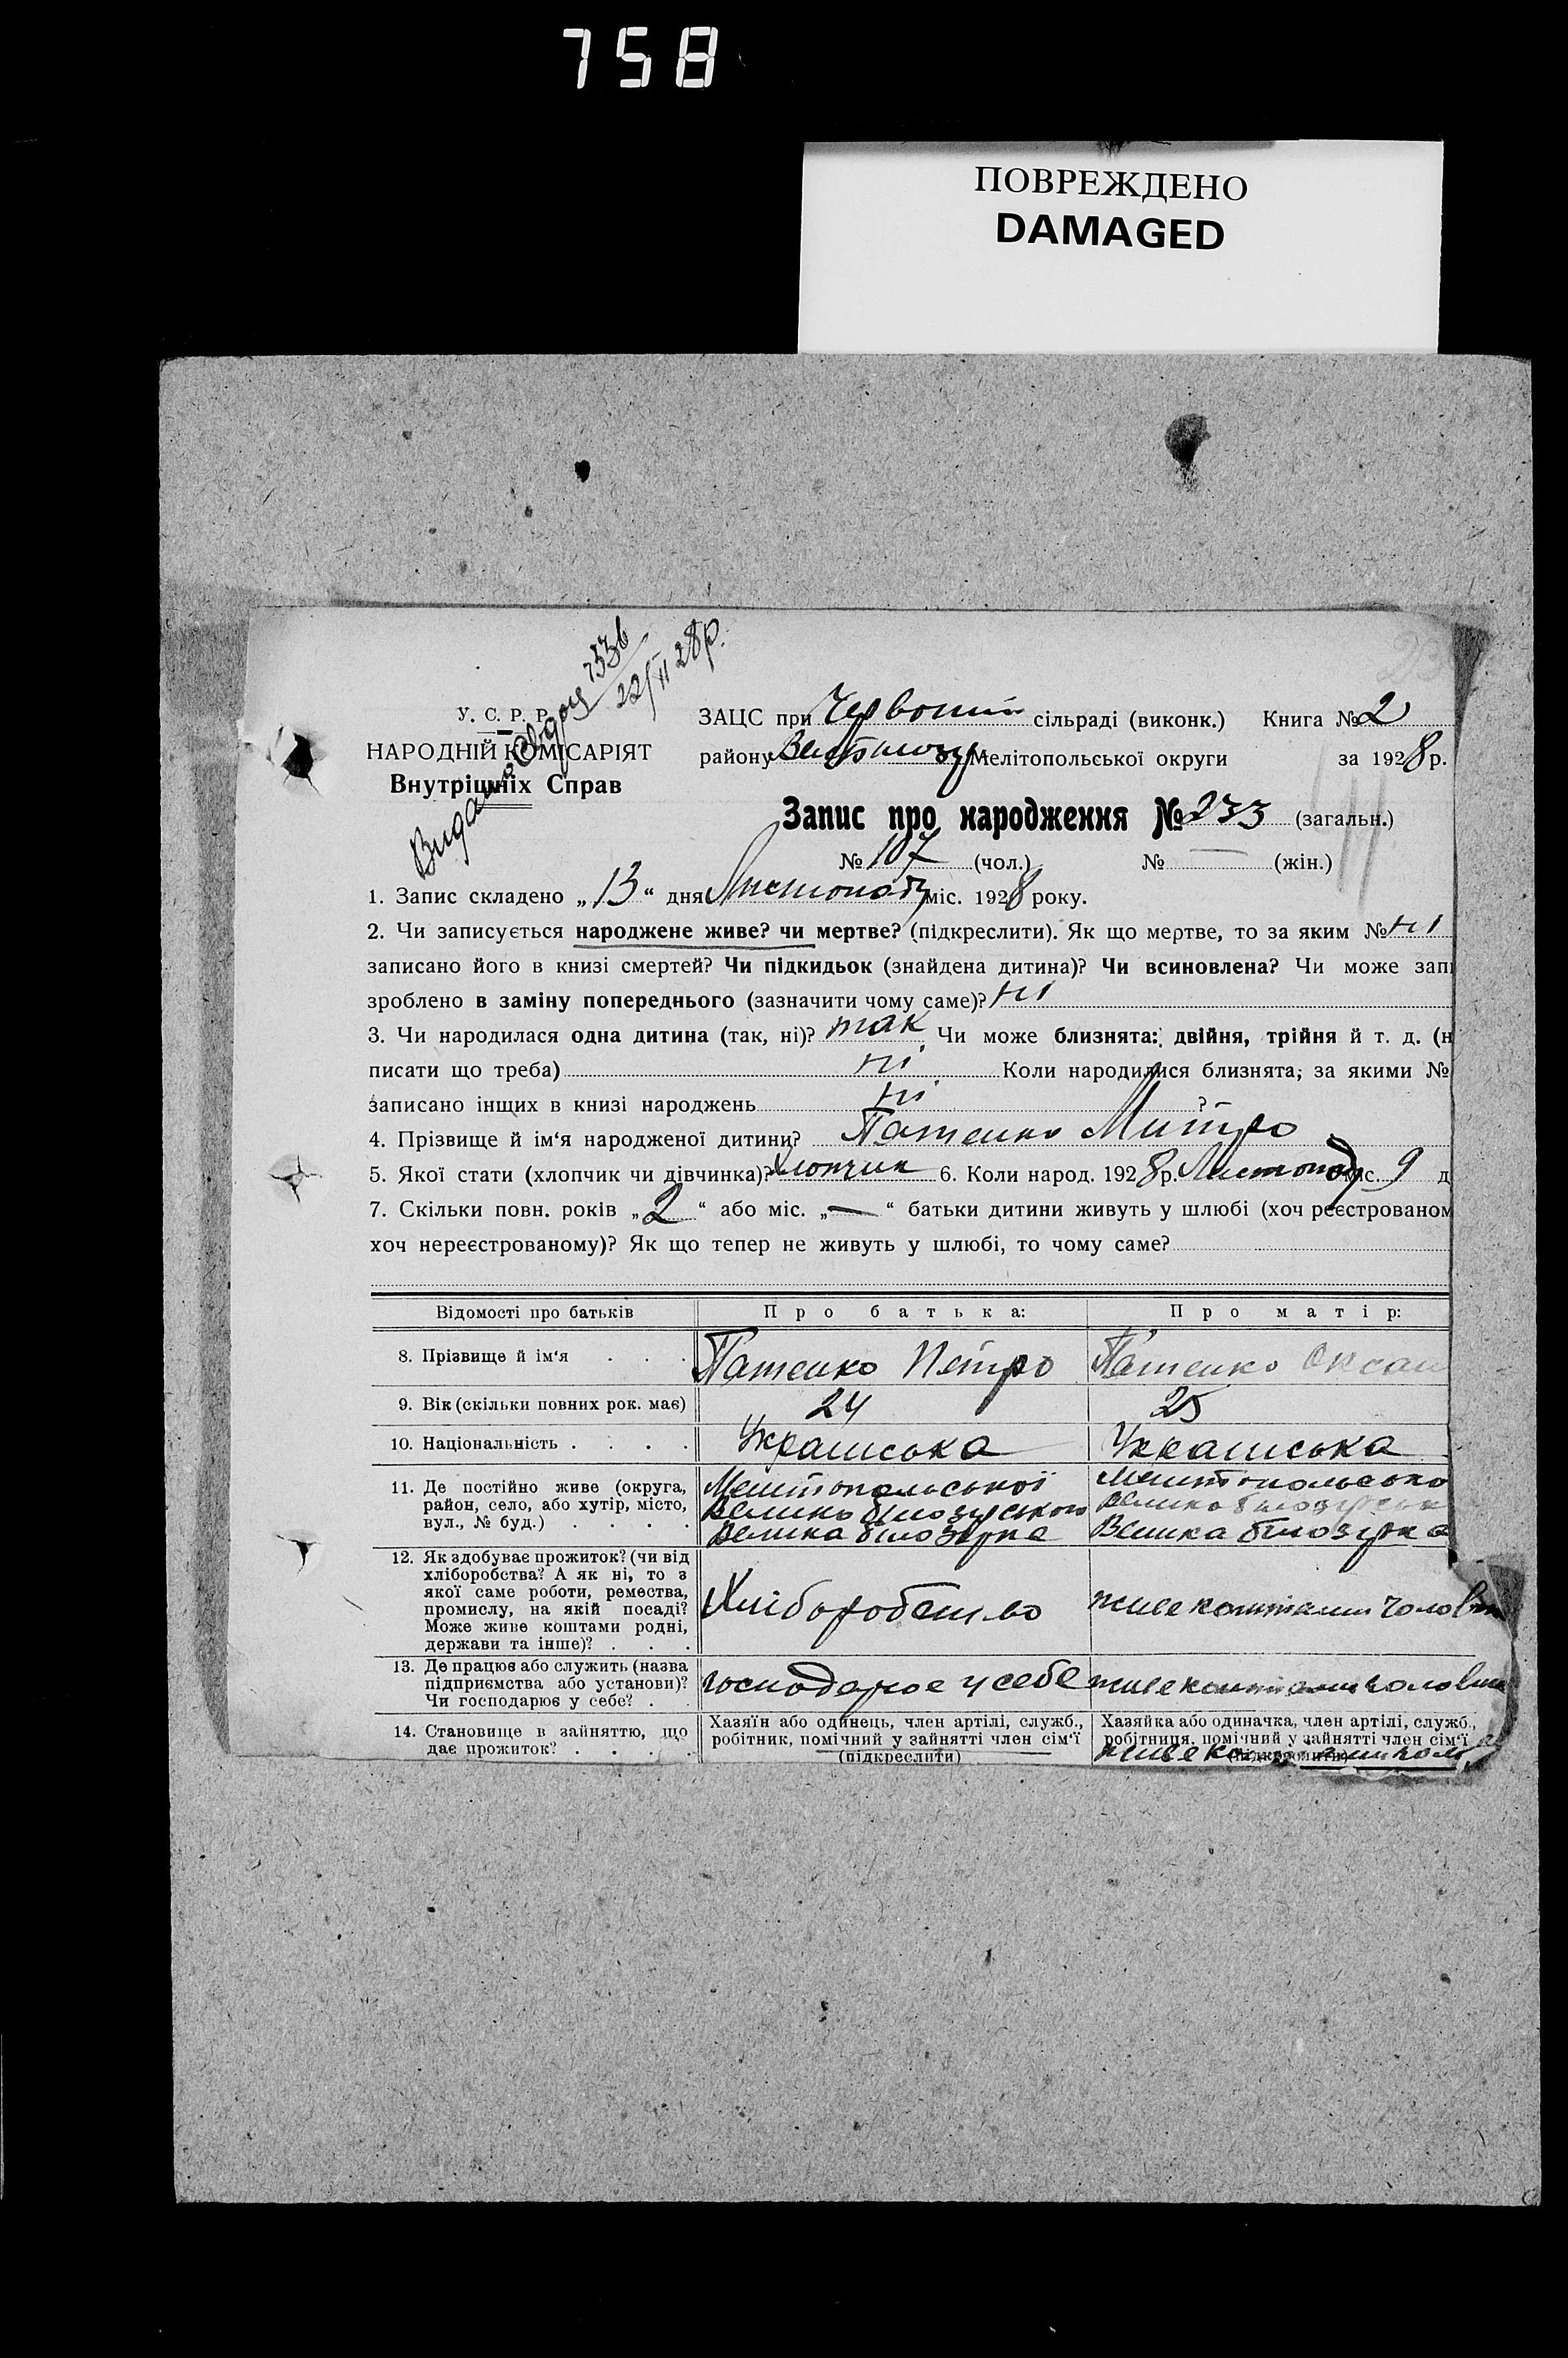 758
ПОВРЕЖДЕНО
DAMAGED
22/II 28р.
У. С. Р. Р.
НАРОДНІЙ КОМІСАРІЯТ
Внутрішніх Справ
ЗАЦС при сільраді (виконк.) Книга № 2
району Мелітопольської округи за 1928 р.
Запис про народження № 233 (загальн.)
№ 107 (чол.) № — (жін.)
1. Запис складено „13“ дня Листопаду міс. 1928 року.
2. Чи записується народжене живе? чи мертве? (підкреслити). Як що мертве, то за яким № ні
записано його в книзі смертей? Чи підкидьок (знайдена дитина)? Чи всиновлена? Чи може зап
зроблено в заміну попереднього (зазначити чому саме)? ні
3. Чи народилася одна дитина (так, ні)? так Чи може близнята: двійня, трійня й т. д. (н
писати що треба) ні Коли народилися близнята, за якими №
записано інщих в книзі народжень ні ?
4. Прізвище й ім‘я народженої дитини? Патенко Митро
5. Якої стати (хлопчик чи дівчинка)? Хлопчик 6. Коли народ. 1928 р. Листопаду міс. 9 д
7. Скільки повн. років „2“ або міс. „—“ батьки дитини живуть у шлюбі (хоч реєстрованом
хоч нереєстрованому)? Як що тепер не живуть у шлюбі, то чому саме?
Відомості про батьків Про батька: Про матір:
8. Прізвище й ім‘я . . . Патенко Петро Патенко Оксан
9. Вік (скільки повних рок. має) 24 25
10. Національність . . . . Українська Українська
11. Де постійно живе (округа, район, село, або хутір, місто, вул., № буд.) . . . .
Мелітопольської Мелітопольсько
Велико білозірського Велико білозірськ
Велика білозірка Велика білозірка
12. Як здобуває прожиток? (чи від
хліборобства? А як ні, то з
якої саме роботи, ремества,
промислу, на якій посаді?
Може живе коштами родні,
держави та інше)? . . .
Хліборобство живе коштами чолов
13. Де працює або служить (назва
підприємства або установи)?
Чи господарює у себе? .
господарює у себе живе коштами чолов
14. Становище в зайняттю, що
дає прожиток? . . . .
Хазяїн або одинець, член артілі, служб.,
робітник, помічний у зайнятті член сім‘ї
(підкреслити)
Хазяйка або одиначка, член артілі, служб.,
робітниця, помічний у зайнятті член сім‘ї
(підкреслити)
живе